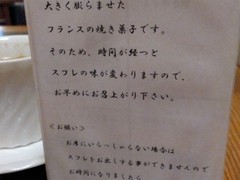 大きく膨らませた
フランスの焼き菓子です。
そのため、時間が経つと
スフレの味が変わりますので、
お早めにお召上がり下さい。
<お願い>
お席にいらっしゃらない場合は
スフレをお出しする事ができませんので
お時間になりましたら